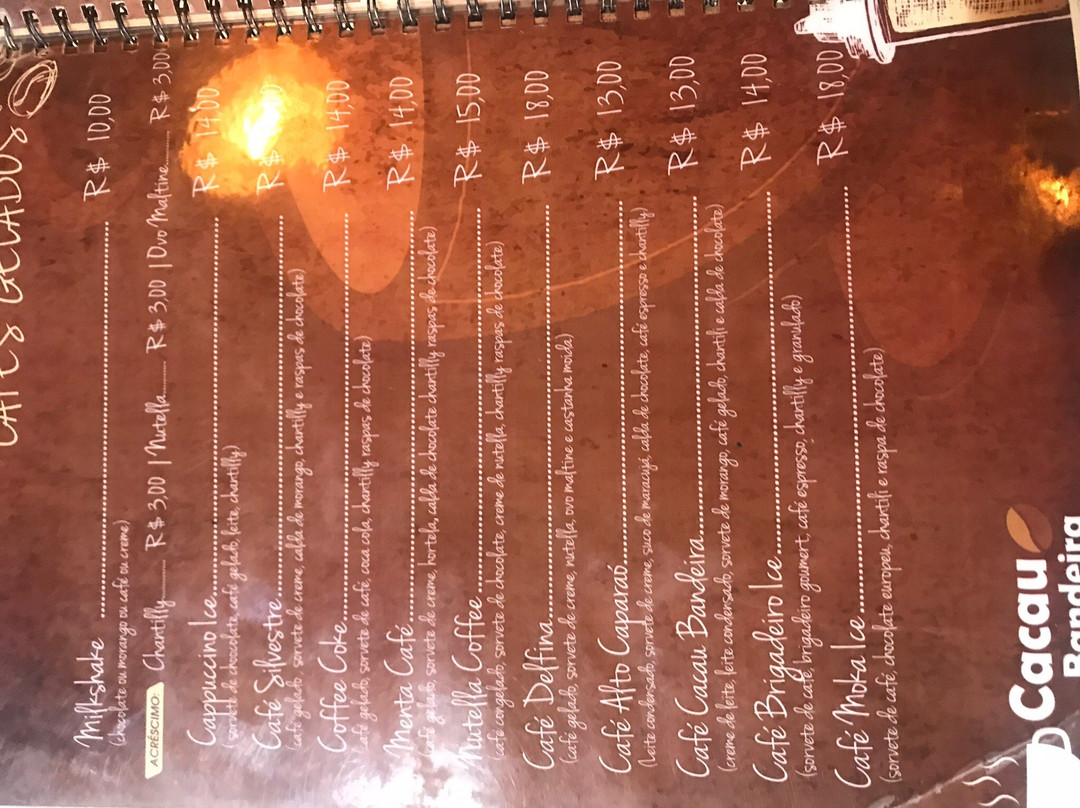 CAFÉS GELADOS
Milkshake R$ 10,00
(chocolate ou morango ou café ou creme)
ACRÉSCIMO: Chantilly R$ 3,00 | Nutella R$ 3,00 | Ovo Maltine R$ 3,00
Cappuccino Ice R$ 14,00
(sorvete de chocolate, café gelado, leite, chantilly)
Café Silvestre R$
(café gelado, sorvete de creme, calda de morango, chantilly e raspas de chocolate)
Coffee Coke R$ 14,00
(café gelado, sorvete de café, coca cola, chantilly, raspas de chocolate)
Menta Café R$ 14,00
(café gelado, sorvete de creme, hortela, calda de chocolate chantilly, raspas de chocolate)
Nutella Coffee R$ 15,00
(café congelado, sorvete de chocolate, creme de nutella, chantilly, raspas de chocolate)
Café Delfina R$ 18,00
(café gelado, sorvete de creme, nutella, ovo maltine e castanha moida)
Café Alto Caparaó R$ 13,00
(leite condensado, sorvete de creme, suco de maracujá, calda de chocolate, café espresso e chantilly)
Café Cacau Bandeira R$ 13,00
(creme de leite, leite condensado, sorvete de morango, café gelado, chantili e calda de chocolate)
Café Brigadeiro Ice R$ 14,00
(sorvete de café, brigadeiro goumert, café espresso, chantilly e granulado)
Café Moka Ice R$ 18,00
(sorvete de café, chocolate europeu, chantili e raspa de chocolate)
Cacau
Bandeira